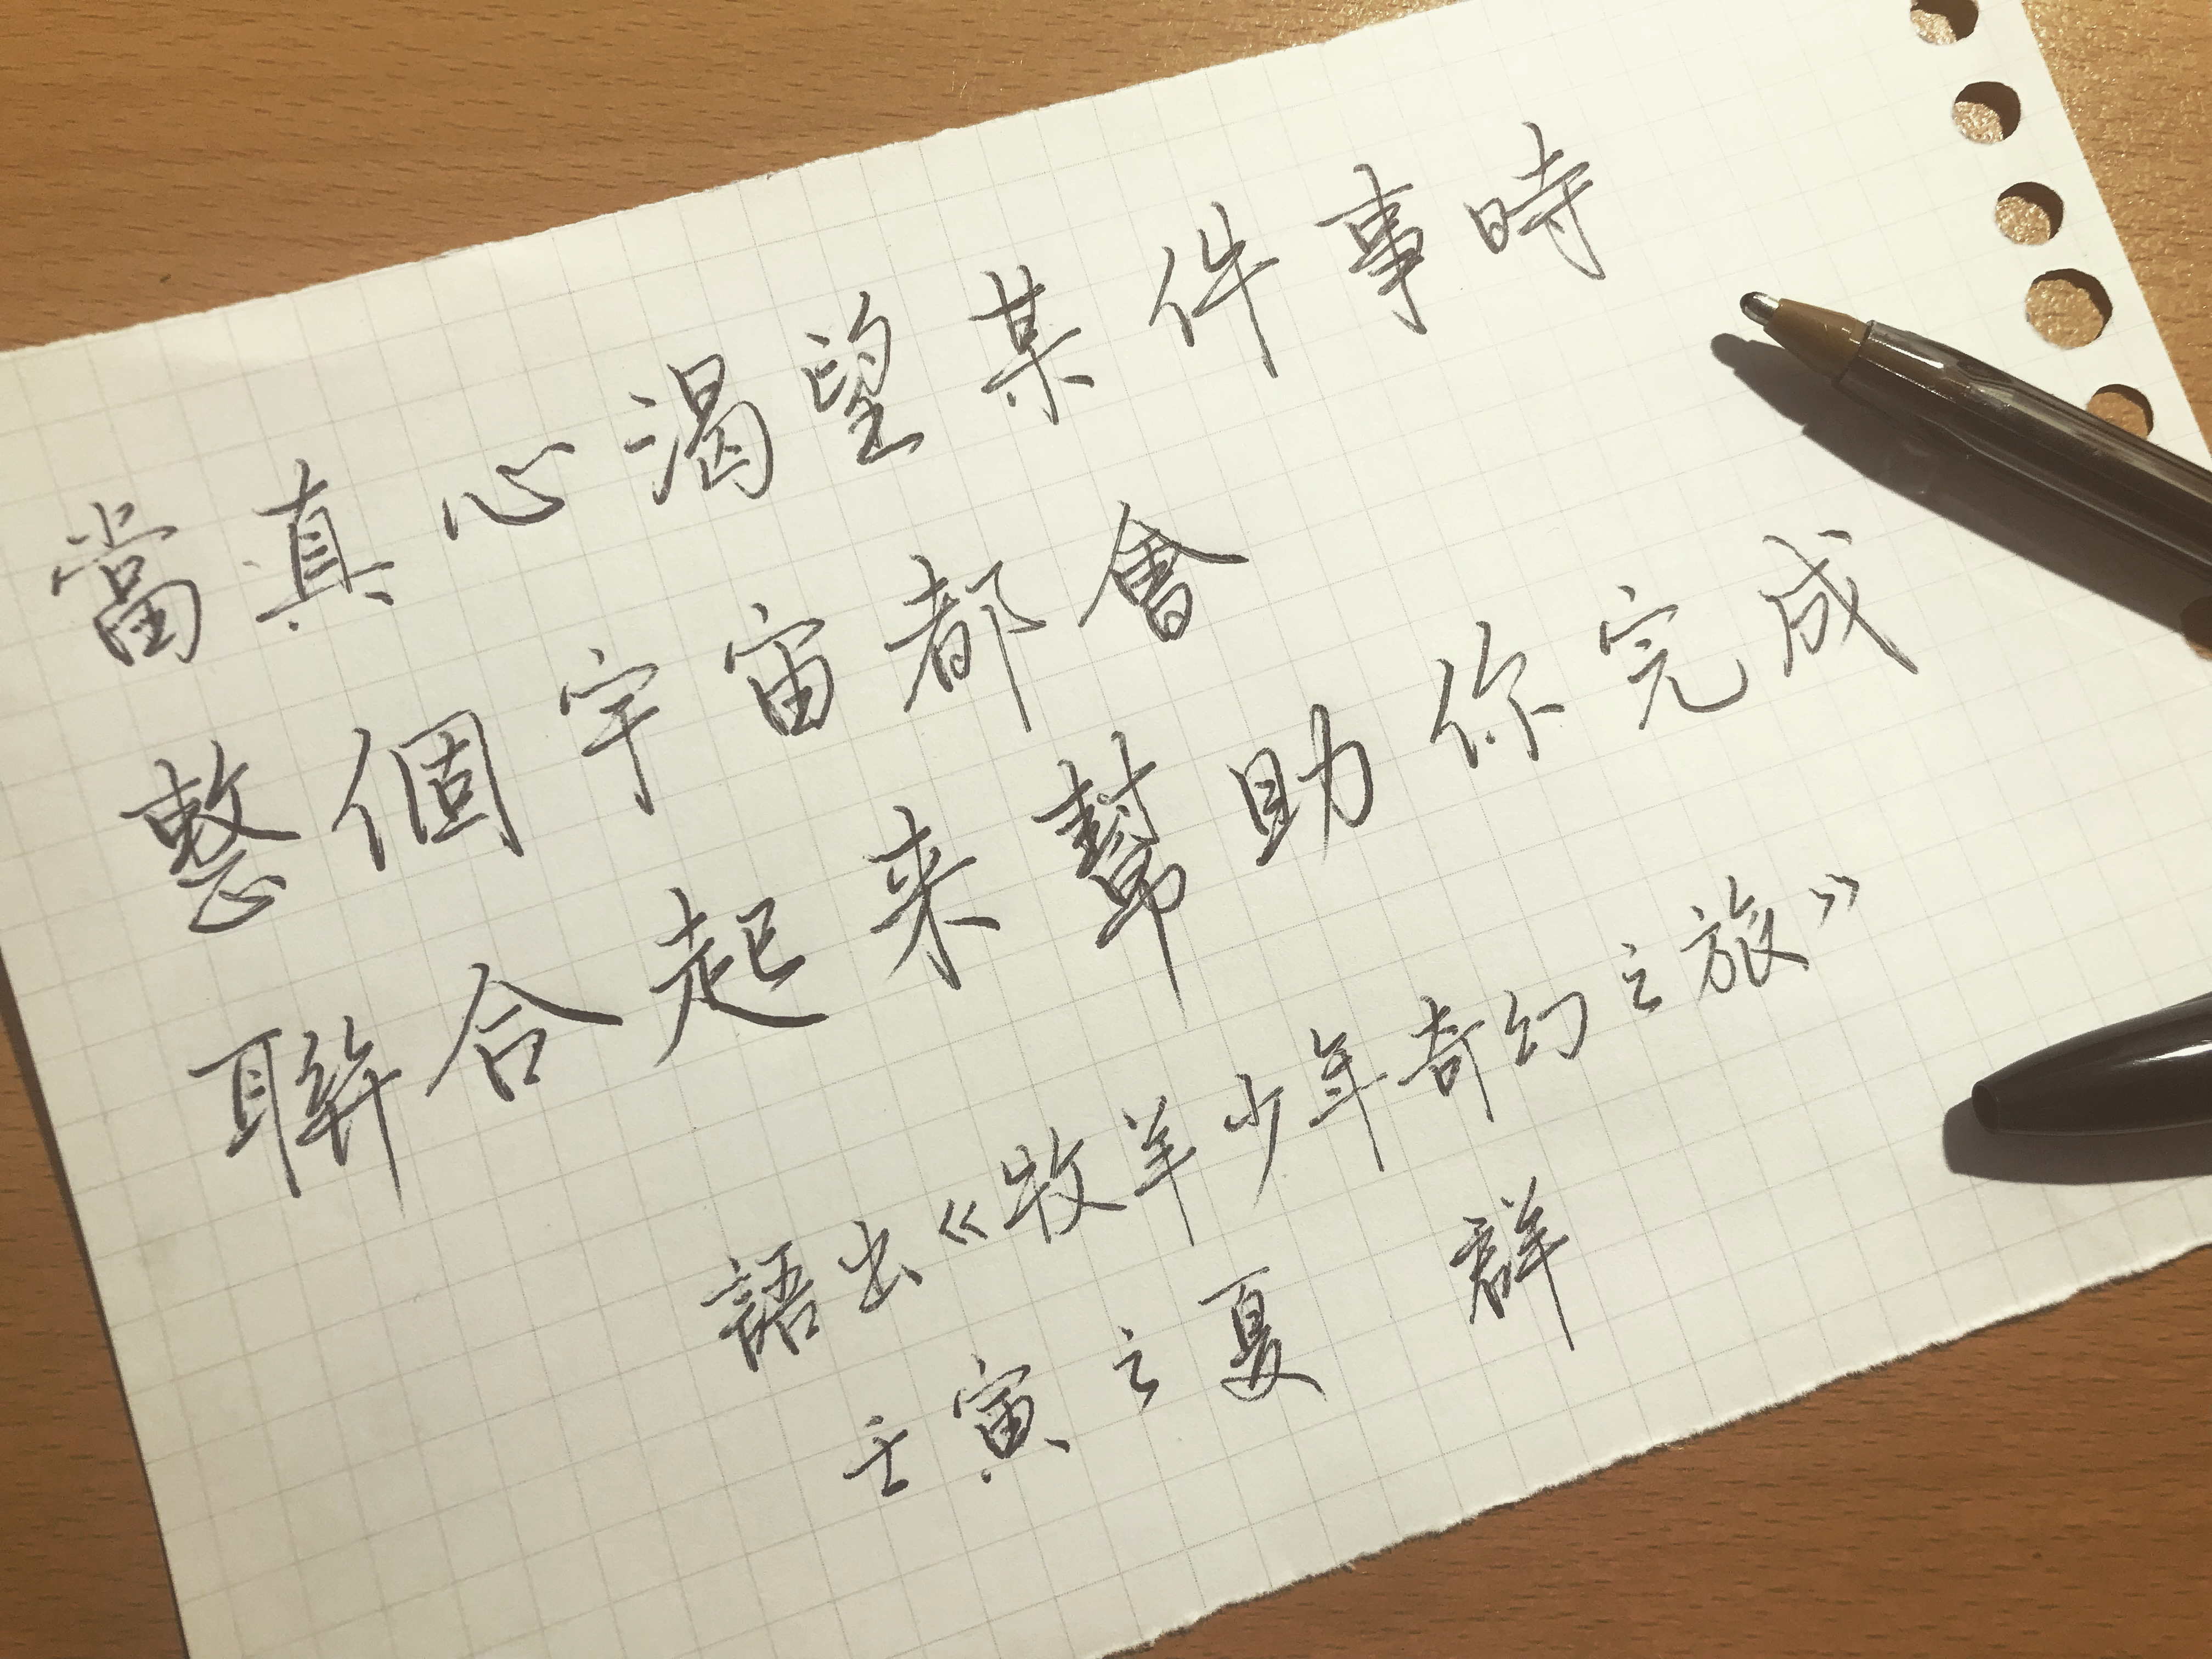 當真心渴望某件事時
整個宇宙都會
聯合起来幫助你完成
語出《牧羊少年奇幻之旅》
壬寅之夏 群